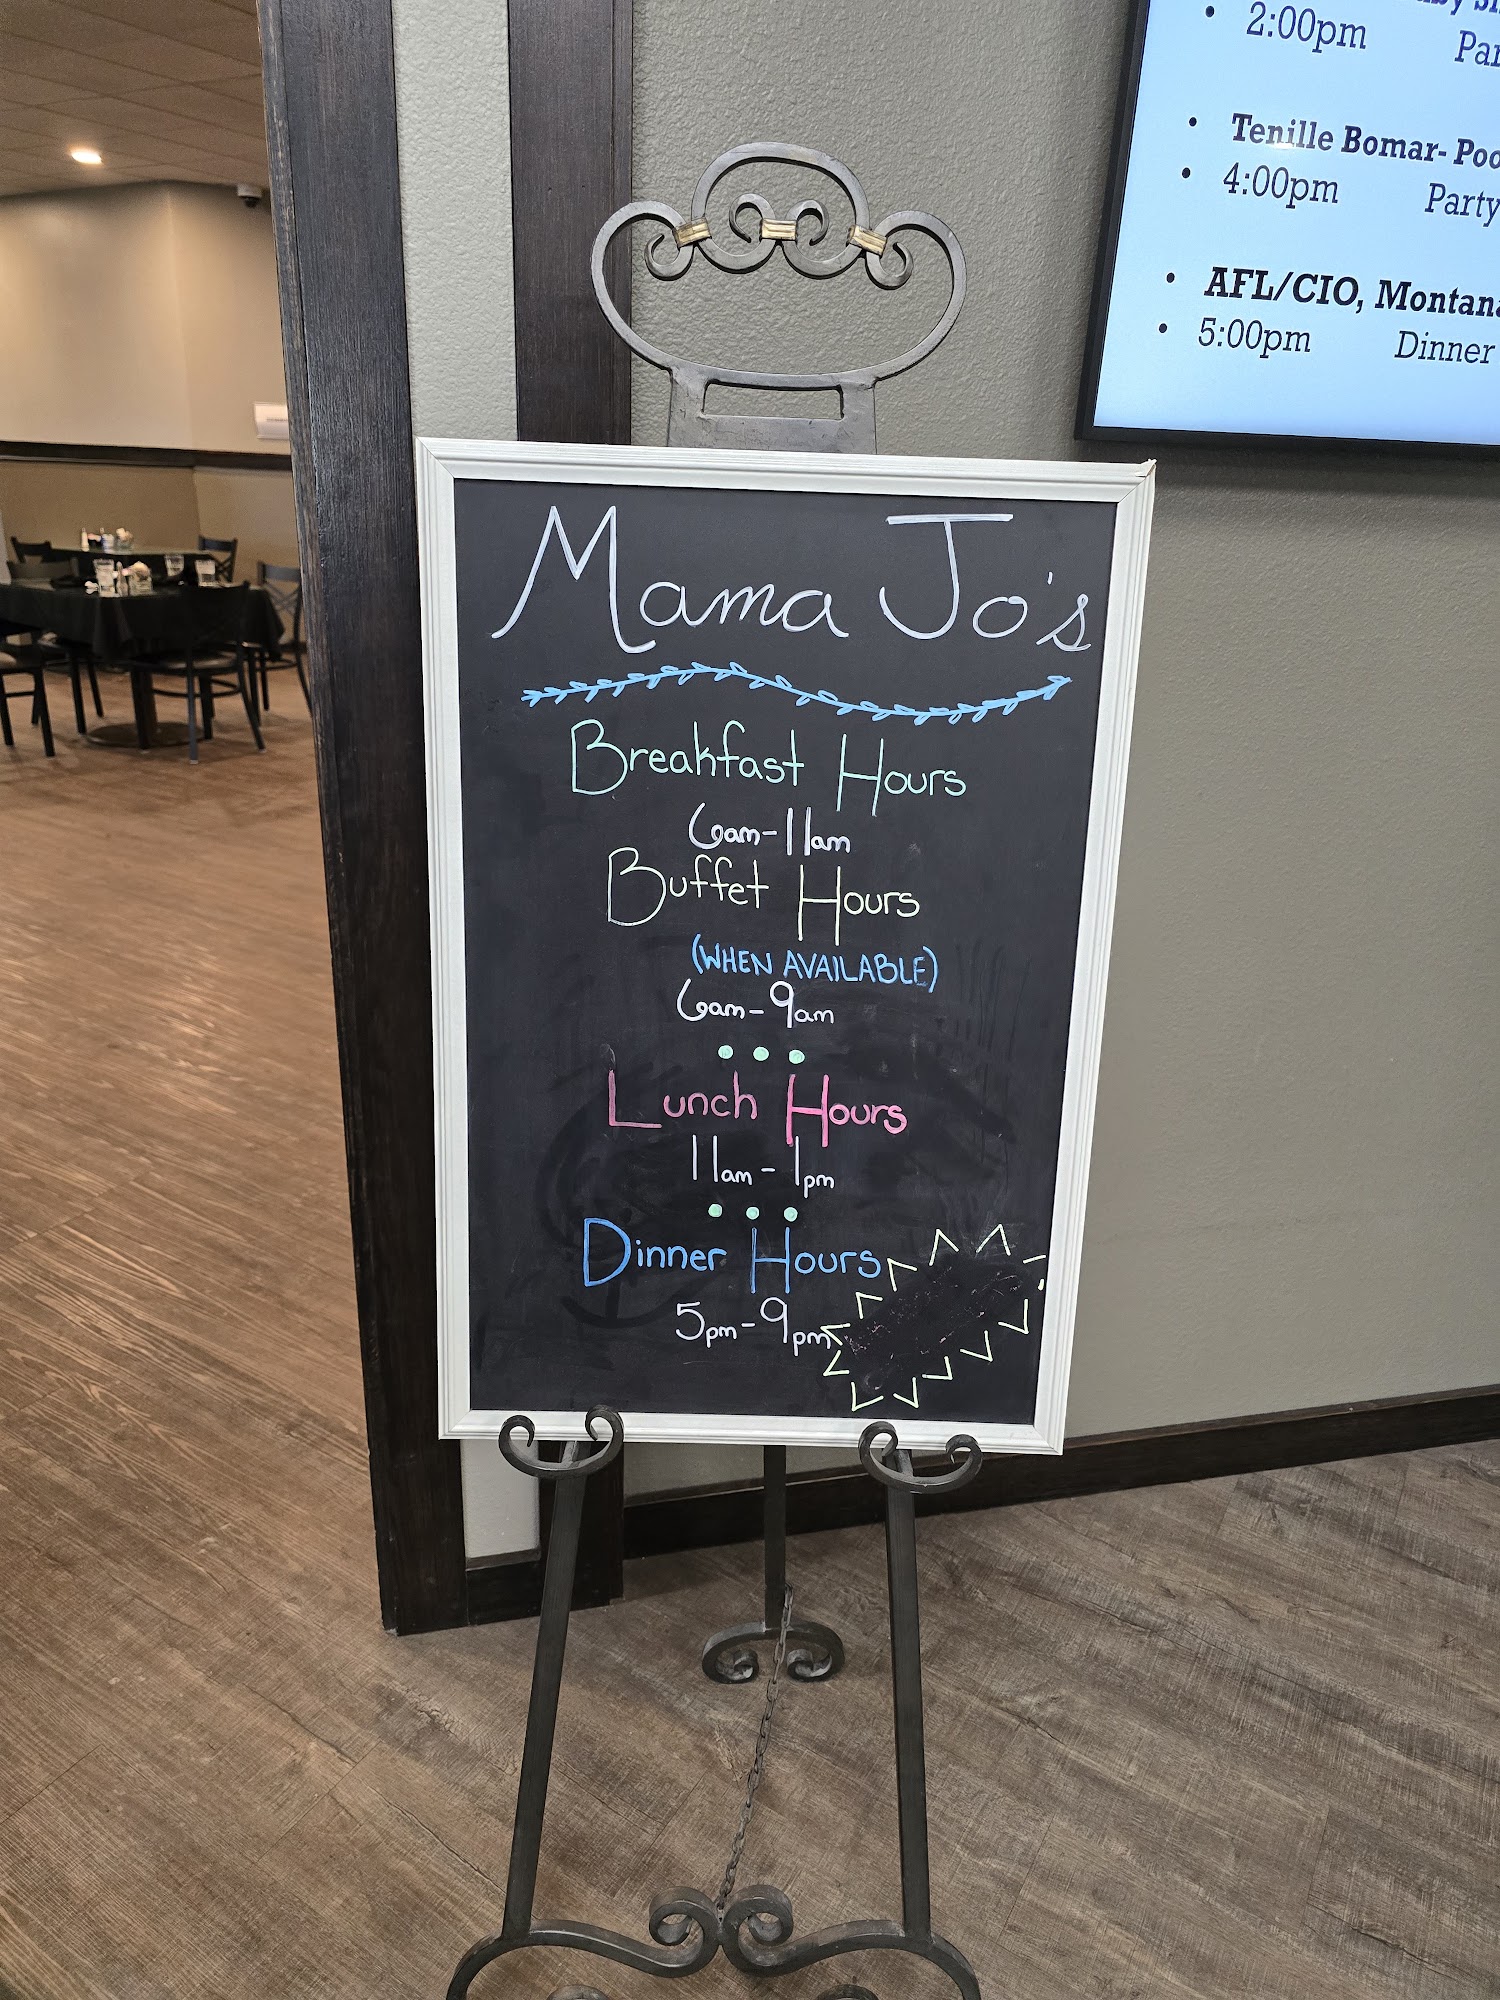 Mama Jo's
Breakfast Hours
6am-11am
Buffet Hours
(WHEN AVAILABLE)
6am-9am
Lunch Hours
11am-1pm
Dinner Hours
5pm-9pm
• 2:00pm
• Tenille Bomar-
• 4:00pm Party
• AFL/CIO, Montana
• 5:00pm Dinner